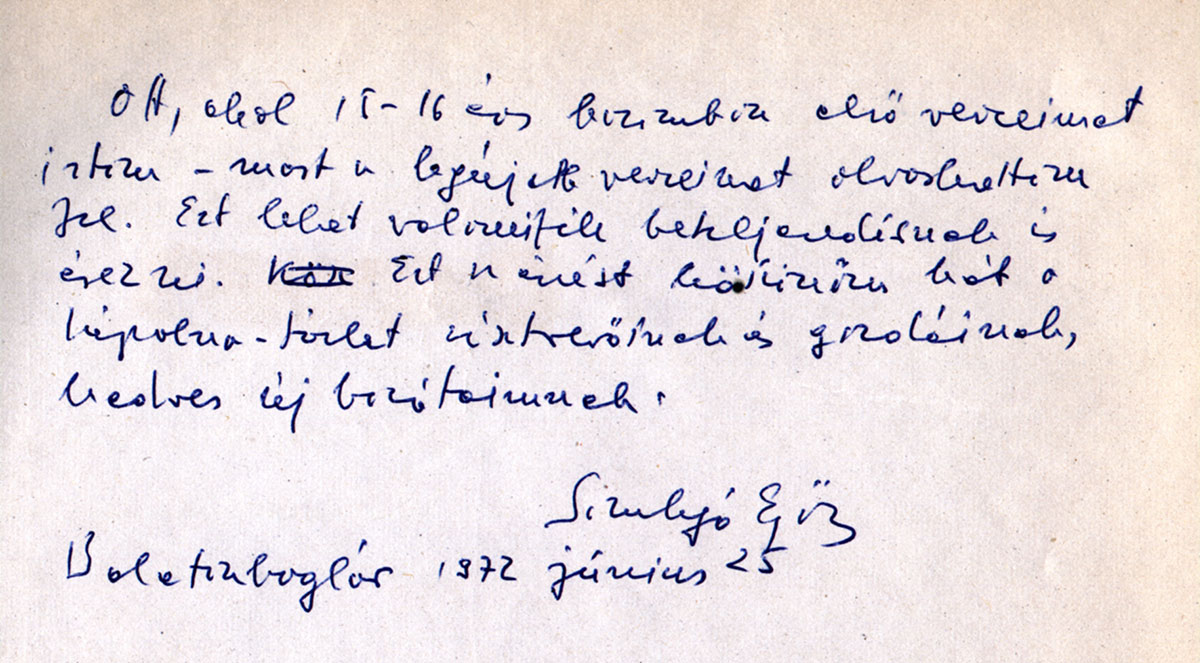 Ott, ahol 15-16 éves koromban első verseimet
írtam – most a legújabb verseimet olvashattam
fel. Ezt lehet valamiféle beteljesedésnek is
érezni. Ezt az érzést köszönöm hát a
kápolna-tárlat résztvevőinek és gazdáinak,
kedves új barátaimnak.
Balatonboglár 1972 június 25